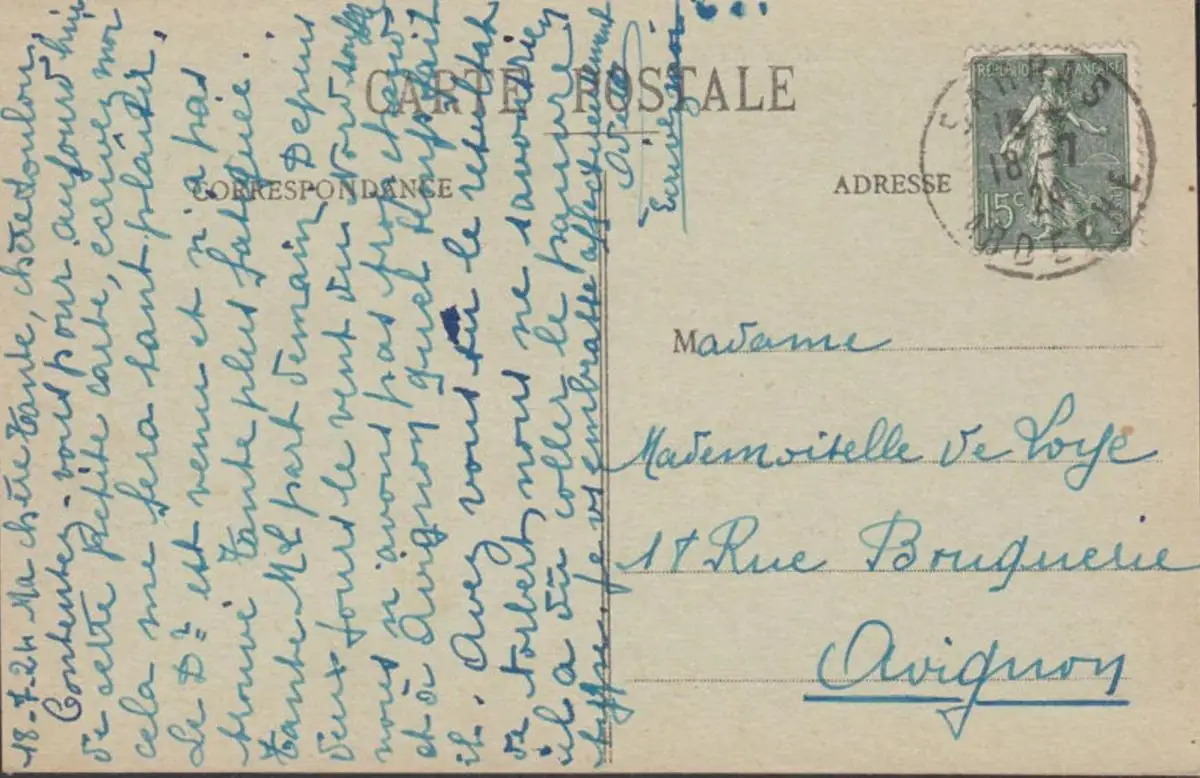 CARTE POSTALE
CORRESPONDANCE
ADRESSE
REPUBLIQUE FRANÇAISE
15c
POSTES
18-7
18-7-24 Ma chère tante, chère Loulou,
Contentez-vous pour aujourd'hui
de cette petite carte, écrivez moi
cela me fera tant plaisir.
Le Dr est venu et n'a pas
trouvé tante plus fatiguée.
Tante M L part demain. Depuis
deux jours le vent du Nord souffle
nous n'avons pas trop chaud
et à Avignon quel temps fait
il. Avez vous su le résultat
de Norbert, nous ne savons rien
il a dû coller le pauvre
type. Je vs embrasse affectueusement
Madame
Mademoiselle de Loye
17 Rue Bouquerie
Avignon